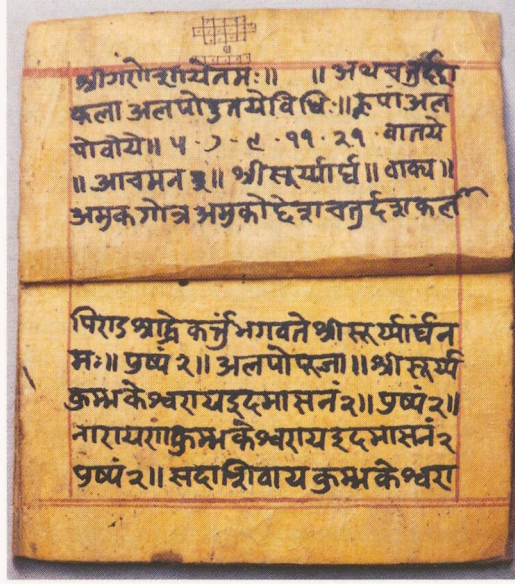 श्रीगरोशायेनमः॥ ॥ अथचतुर्द्दश
कला अलपोहुतयेविधिः॥ कूपां अल
पोवोये॥ ५ · ७ · ९ · ११ · २१ · वातये
॥ आचमन ॥ श्रीसूर्य्यार्घ ॥ वाक्य ॥
अमुकगोत्र अमुकोद्देश चतुर्दशकल
पिराडश्राद्धे कर्त्तुं भगवते श्रीसूर्य्यार्घन
मः॥ पुष्पं २॥ अलपोपूजा॥ श्रीसूर्य्य
कुम्भकेश्वरायइदमासनं२॥ पुष्पं२॥
नारायरा कुम्भकेश्वरायइदमासनं२
पुष्पं२॥ सदाशिवाय कुम्भकेश्वरा